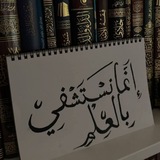 إنّما نَستَشفِي
بِالعِلْمِ